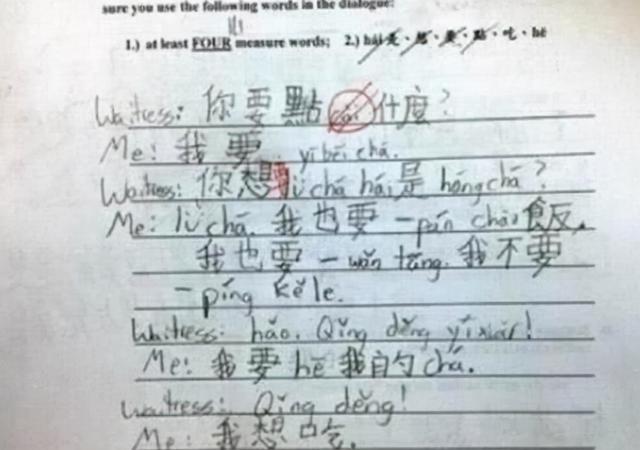 sure you use the following words in the dialogue:
1.) at least FOUR measure words; 2.) hái是、想、要、點、吃、hē
Waitress: 你要點 什麼?
Me: 我要 yì bēi chá.
Waitress: 你想要lǜ chá hái是 hóng chá?
Me: lǜ chá. 我也要一pán chǎo飯.
我也要一wǎn tāng. 我不要
一píng kě lè.
Waitress: hǎo. Qǐng děng yíxiàr!
Me: 我要 hē 我的 chá.
Waitress: Qǐng děng!
Me: 我想吃.